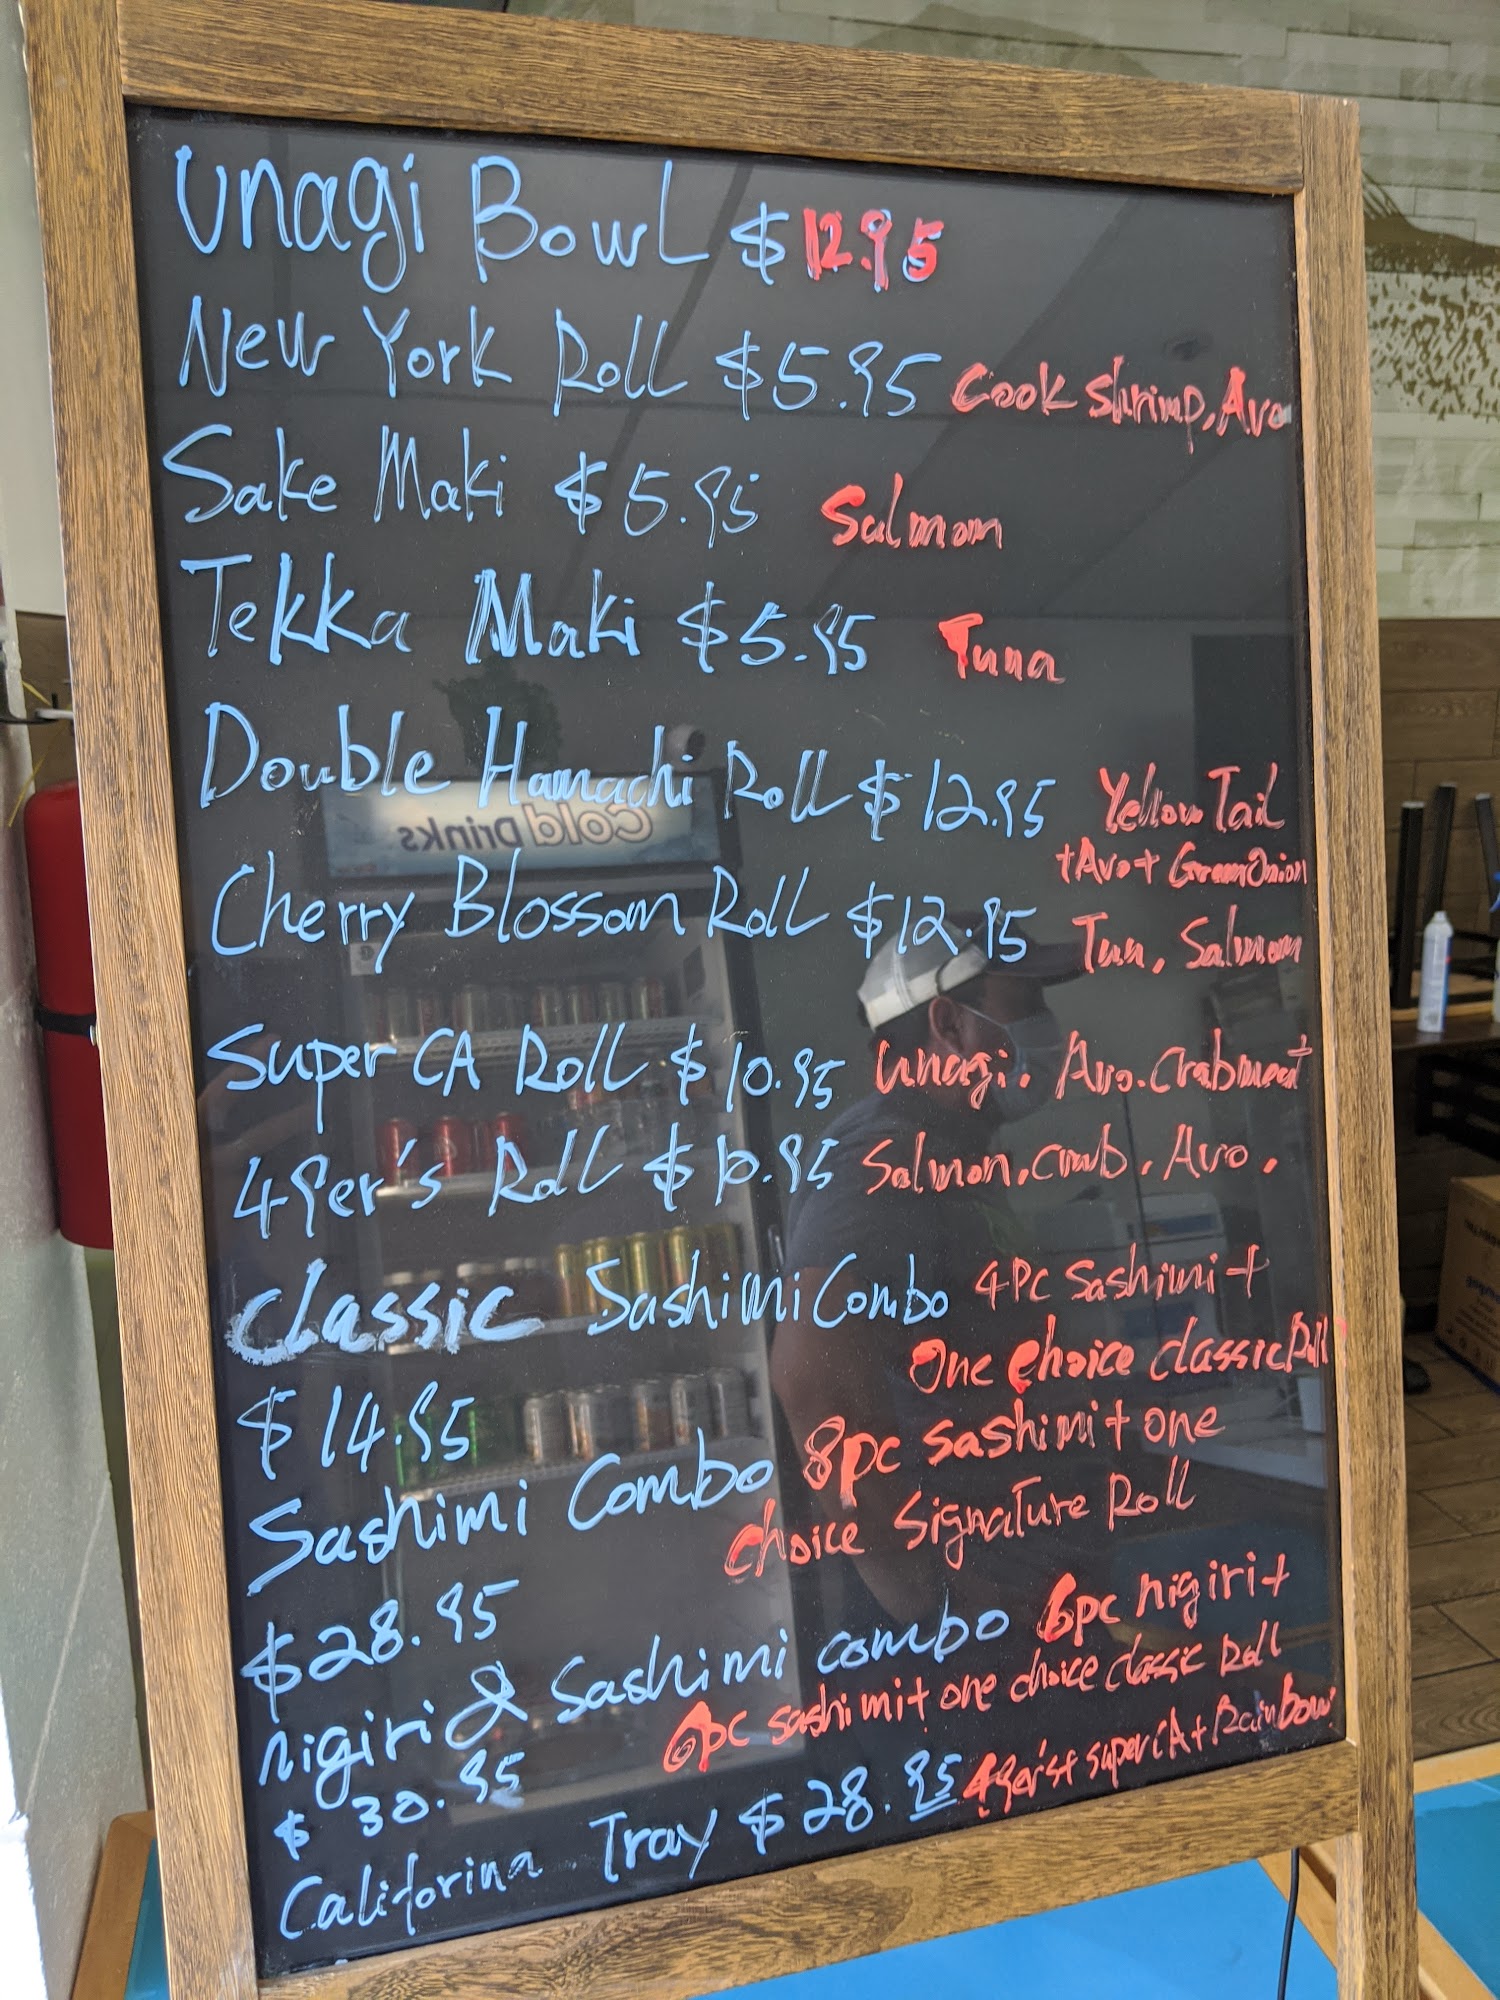 Unagi Bowl $12.95
New York Roll $5.95 Cook Shrimp, Avo
Sake Maki $5.95 Salmon
Tekka Maki $5.95 Tuna
Double Hamachi Roll $12.95 Yellow Tail
+Avo+ Green Onion
Cherry Blossom Roll $12.95 Tun, Salmon
Super CA Roll $10.95 Unagi. Avo. Crabmeat
49er's Roll $10.95 Salmon, Crab, Avo,
Classic Sashimi Combo 4PC Sashimi +
One choice classic Roll
$14.95
Sashimi Combo 8pc sashimi + one
choice Signature Roll
$28.95
nigiri & Sashimi combo 6pc nigiri +
6pc sashimi + one choice classic Roll
$30.95
Califorina Tray $28.95 49er's + super CA + Rainbow
Cold Drinks